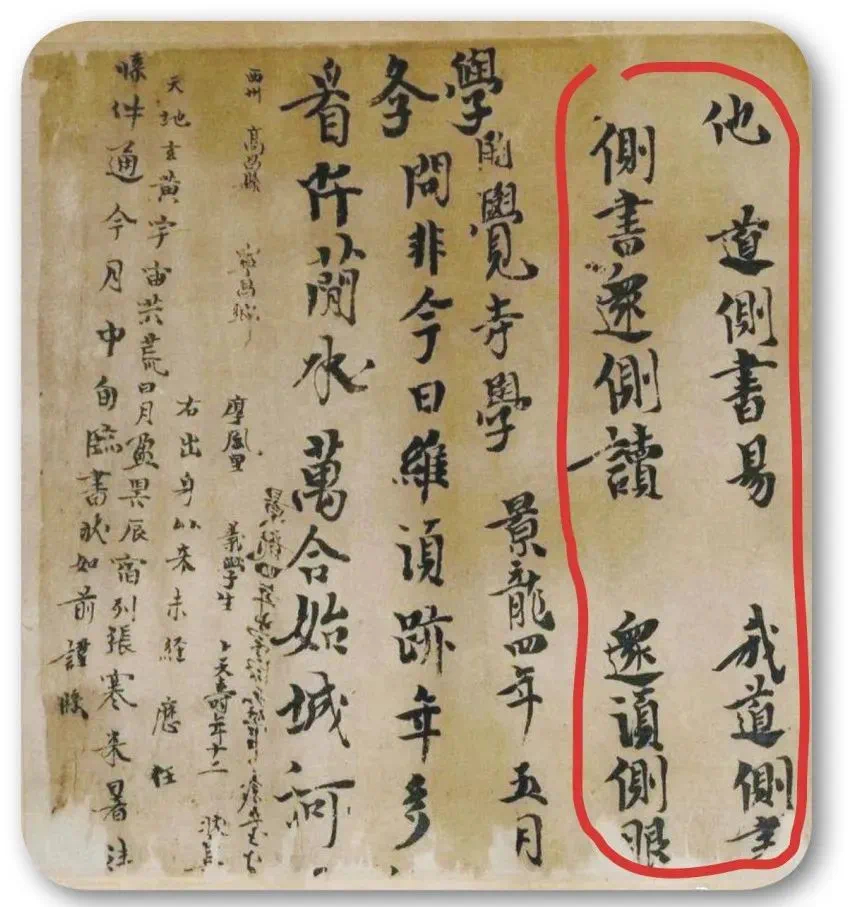 他道側書易 我道側書
側書還側讀 還須側眼
學開覺寺學 景龍四年五月
冬問非今日維須跡年多
看阡簡水萬合始城河
景龍四年
西州 高昌縣 寧昌鄉 厚風里 義學生 卜天壽年十二 狀具
右出身以來未經 歷任
天地玄黃宇宙洪荒日月盈昃辰宿列張寒來暑往
牒件通今月中旬臨書狀如前謹牒